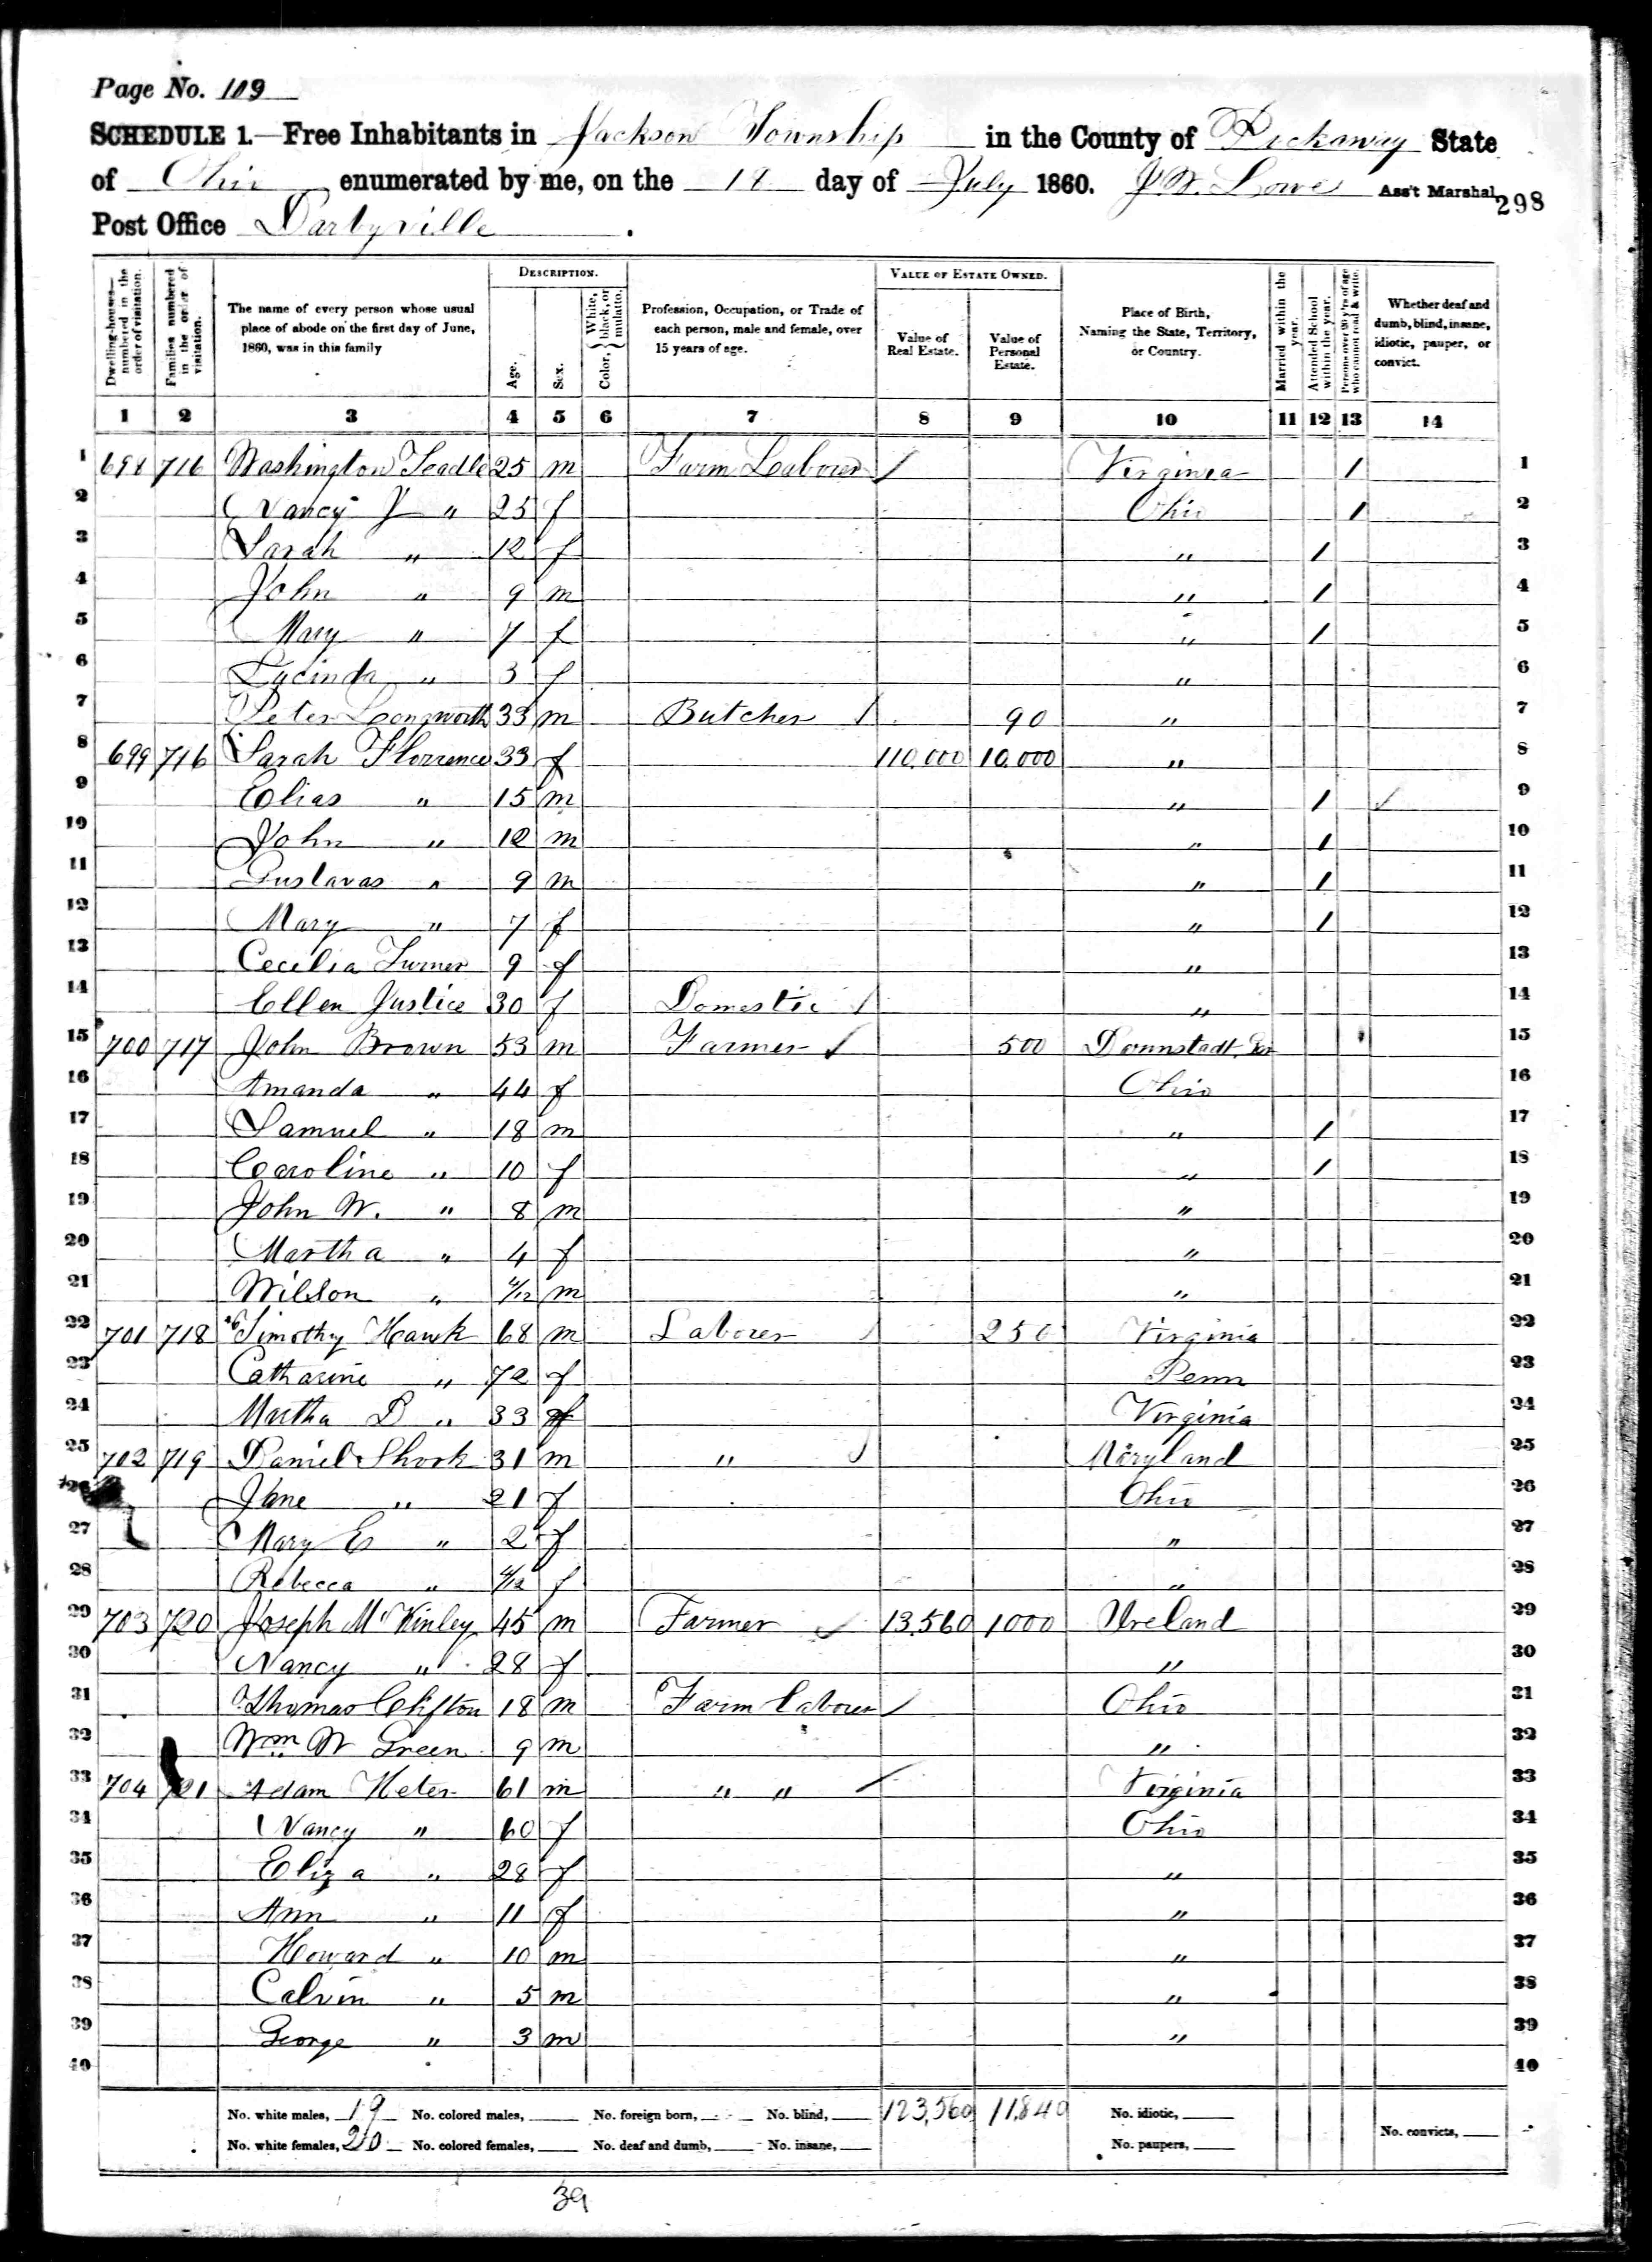 Page No. 109
SCHEDULE 1.—Free Inhabitants in Jackson Township in the County of Pickaway State
of Ohio enumerated by me, on the 18 day of July 1860. J. W. Lowe Ass't Marshal.
298
Post Office Darbyville.
Dwelling-houses—numbered in the order of visitation.
Families numbered in the order of visitation.
The name of every person whose usual place of abode on the first day of June, 1860, was in this family
DESCRIPTION.
Age.
Sex.
Color, White, black, or mulatto.
Profession, Occupation, or Trade of each person, male and female, over 15 years of age.
VALUE OF ESTATE OWNED.
Value of Real Estate.
Value of Personal Estate.
Place of Birth, Naming the State, Territory, or Country.
Married within the year.
Attended School within the year.
Persons over 20 y'rs of age who cannot read & write.
Whether deaf and dumb, blind, insane, idiotic, pauper, or convict.
1 2 3 4 5 6 7 8 9 10 11 12 13 14
1 698 716 Washington Teadle 25 m Farm Labourer / Virginia / 1
2 Nancy J " 25 f Ohio / 2
3 Sarah " 12 f " / 3
4 John " 9 m " / 4
5 Mary " 7 f " / 5
6 Lucinda " 3 f " 6
7 Peter Longworth 33 m Butcher / 90 " 7
8 699 716 Sarah Florrence 33 f 110,000 10,000 " 8
9 Elias " 15 m " / / 9
10 John " 12 m " / 10
11 Gustavas " 9 m " / 11
12 Mary " 7 f " / 12
13 Cecelia Turner 9 f " 13
14 Ellen Justice 30 f Domestic / " 14
15 700 717 John Brown 53 m Farmer / 500 15
16 Amanda " 44 f Ohio 16
17 Samuel " 18 m " / 17
18 Caroline " 10 f " / 18
19 John W. " 8 m " 19
20 Martha " 4 f " 20
21 Wilson " 4/12 m " 21
22 701 718 Timothy Hawk 68 m Laborer / 250 Virginia 22
23 Catharine " 72 f Penn 23
24 Martha D " 33 f Virginia 24
25 702 719 Daniel Shook 31 m " / Maryland 25
26 Jane " 21 f Ohio 26
27 Mary E " 2 f " 27
28 Rebecca " 4/12 f " 28
29 703 720 Joseph McKinley 45 m Farmer / 13,560 1000 Ireland 29
30 Nancy " 28 f " 30
31 Thomas Clifton 18 m Farm laborer / Ohio 31
32 Wm W Green 9 m " 32
33 704 721 Adam Heter 61 m " " / Virginia 33
34 Nancy " 60 f Ohio 34
35 Eliza " 28 f " 35
36 Ann " 11 f " 36
37 Howard " 10 m " 37
38 Calvin " 5 m " 38
39 George " 3 m " 39
40 40
No. white males, 19 No. colored males, No. foreign born, No. blind, 123,560 11,840 No. idiotic,
No. white females, 20 No. colored females, No. deaf and dumb, No. insane, No. paupers, No. convicts,
39